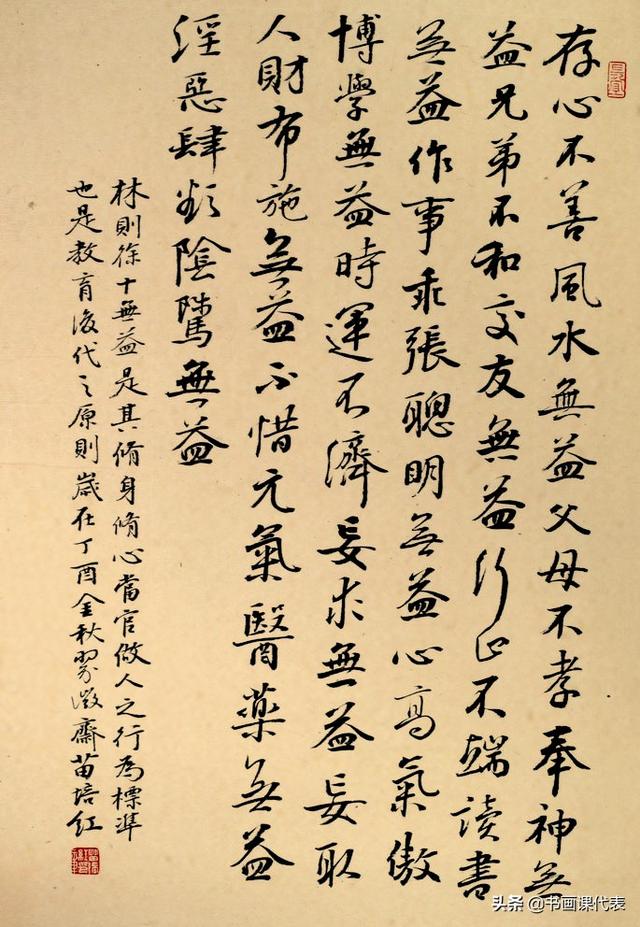 存心不善風水無益父母不孝奉神無
益兄弟不和交友無益行止不端读書
無益作事乖張聰明無益心高氣傲
博學無益時運不濟妄求無益妄取
人財布施無益不惜元氣醫藥無益
淫惡肆欲陰騭無益
林則徐十無益是其脩身脩心當官做人之行為標準
也是教育後代之原則歲在丁酉金秋翠微齋苗培红
头条@书画课代表